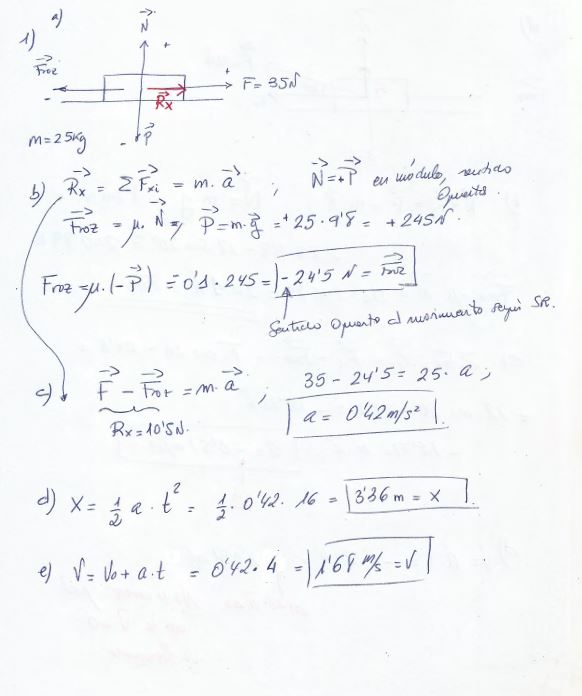 a)
1)
N⃗
+
F⃗roz
+
F = 35N
-
R⃗x
m = 25kg
- P⃗
b) R⃗x = Σ F⃗xi = m · a⃗ ; N⃗ = +P⃗ en módulo, sentido opuesto.
F⃗roz = μ · N⃗ =, P⃗ = m · g⃗ = +25 · 9'8 = +245N.
Froz = μ · (-P⃗) = -0'1 · 245 = -24'5 N = F⃗roz
Sentido opuesto al movimiento según SR.
c) F⃗ - F⃗roz = m · a⃗ ; 35 - 24'5 = 25 · a ;
Rx = 10'5N. a = 0'42 m/s²
d) X = 1/2 a · t² = 1/2 · 0'42 · 16 = 3'36 m = X
e) V = V₀ + a · t = 0'42 · 4 = 1'68 m/s = V